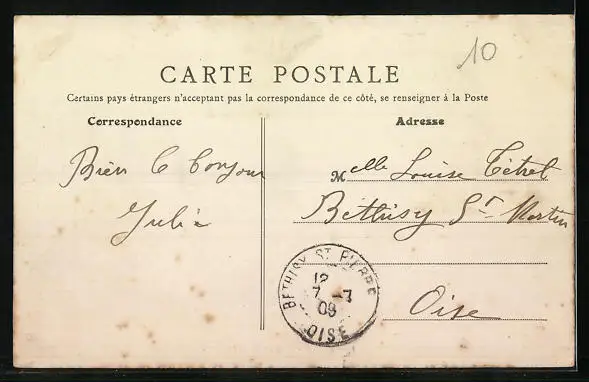 10
CARTE POSTALE
Certains pays étrangers n'acceptant pas la correspondance de ce côté, se renseigner à la Poste
Correspondance
Bien le bonjour
Julia
Adresse
Melle Louise Tétrel
Béthisy St Martin
Oise
BETHISY ST PIERRE
12
7 -7
09
OISE